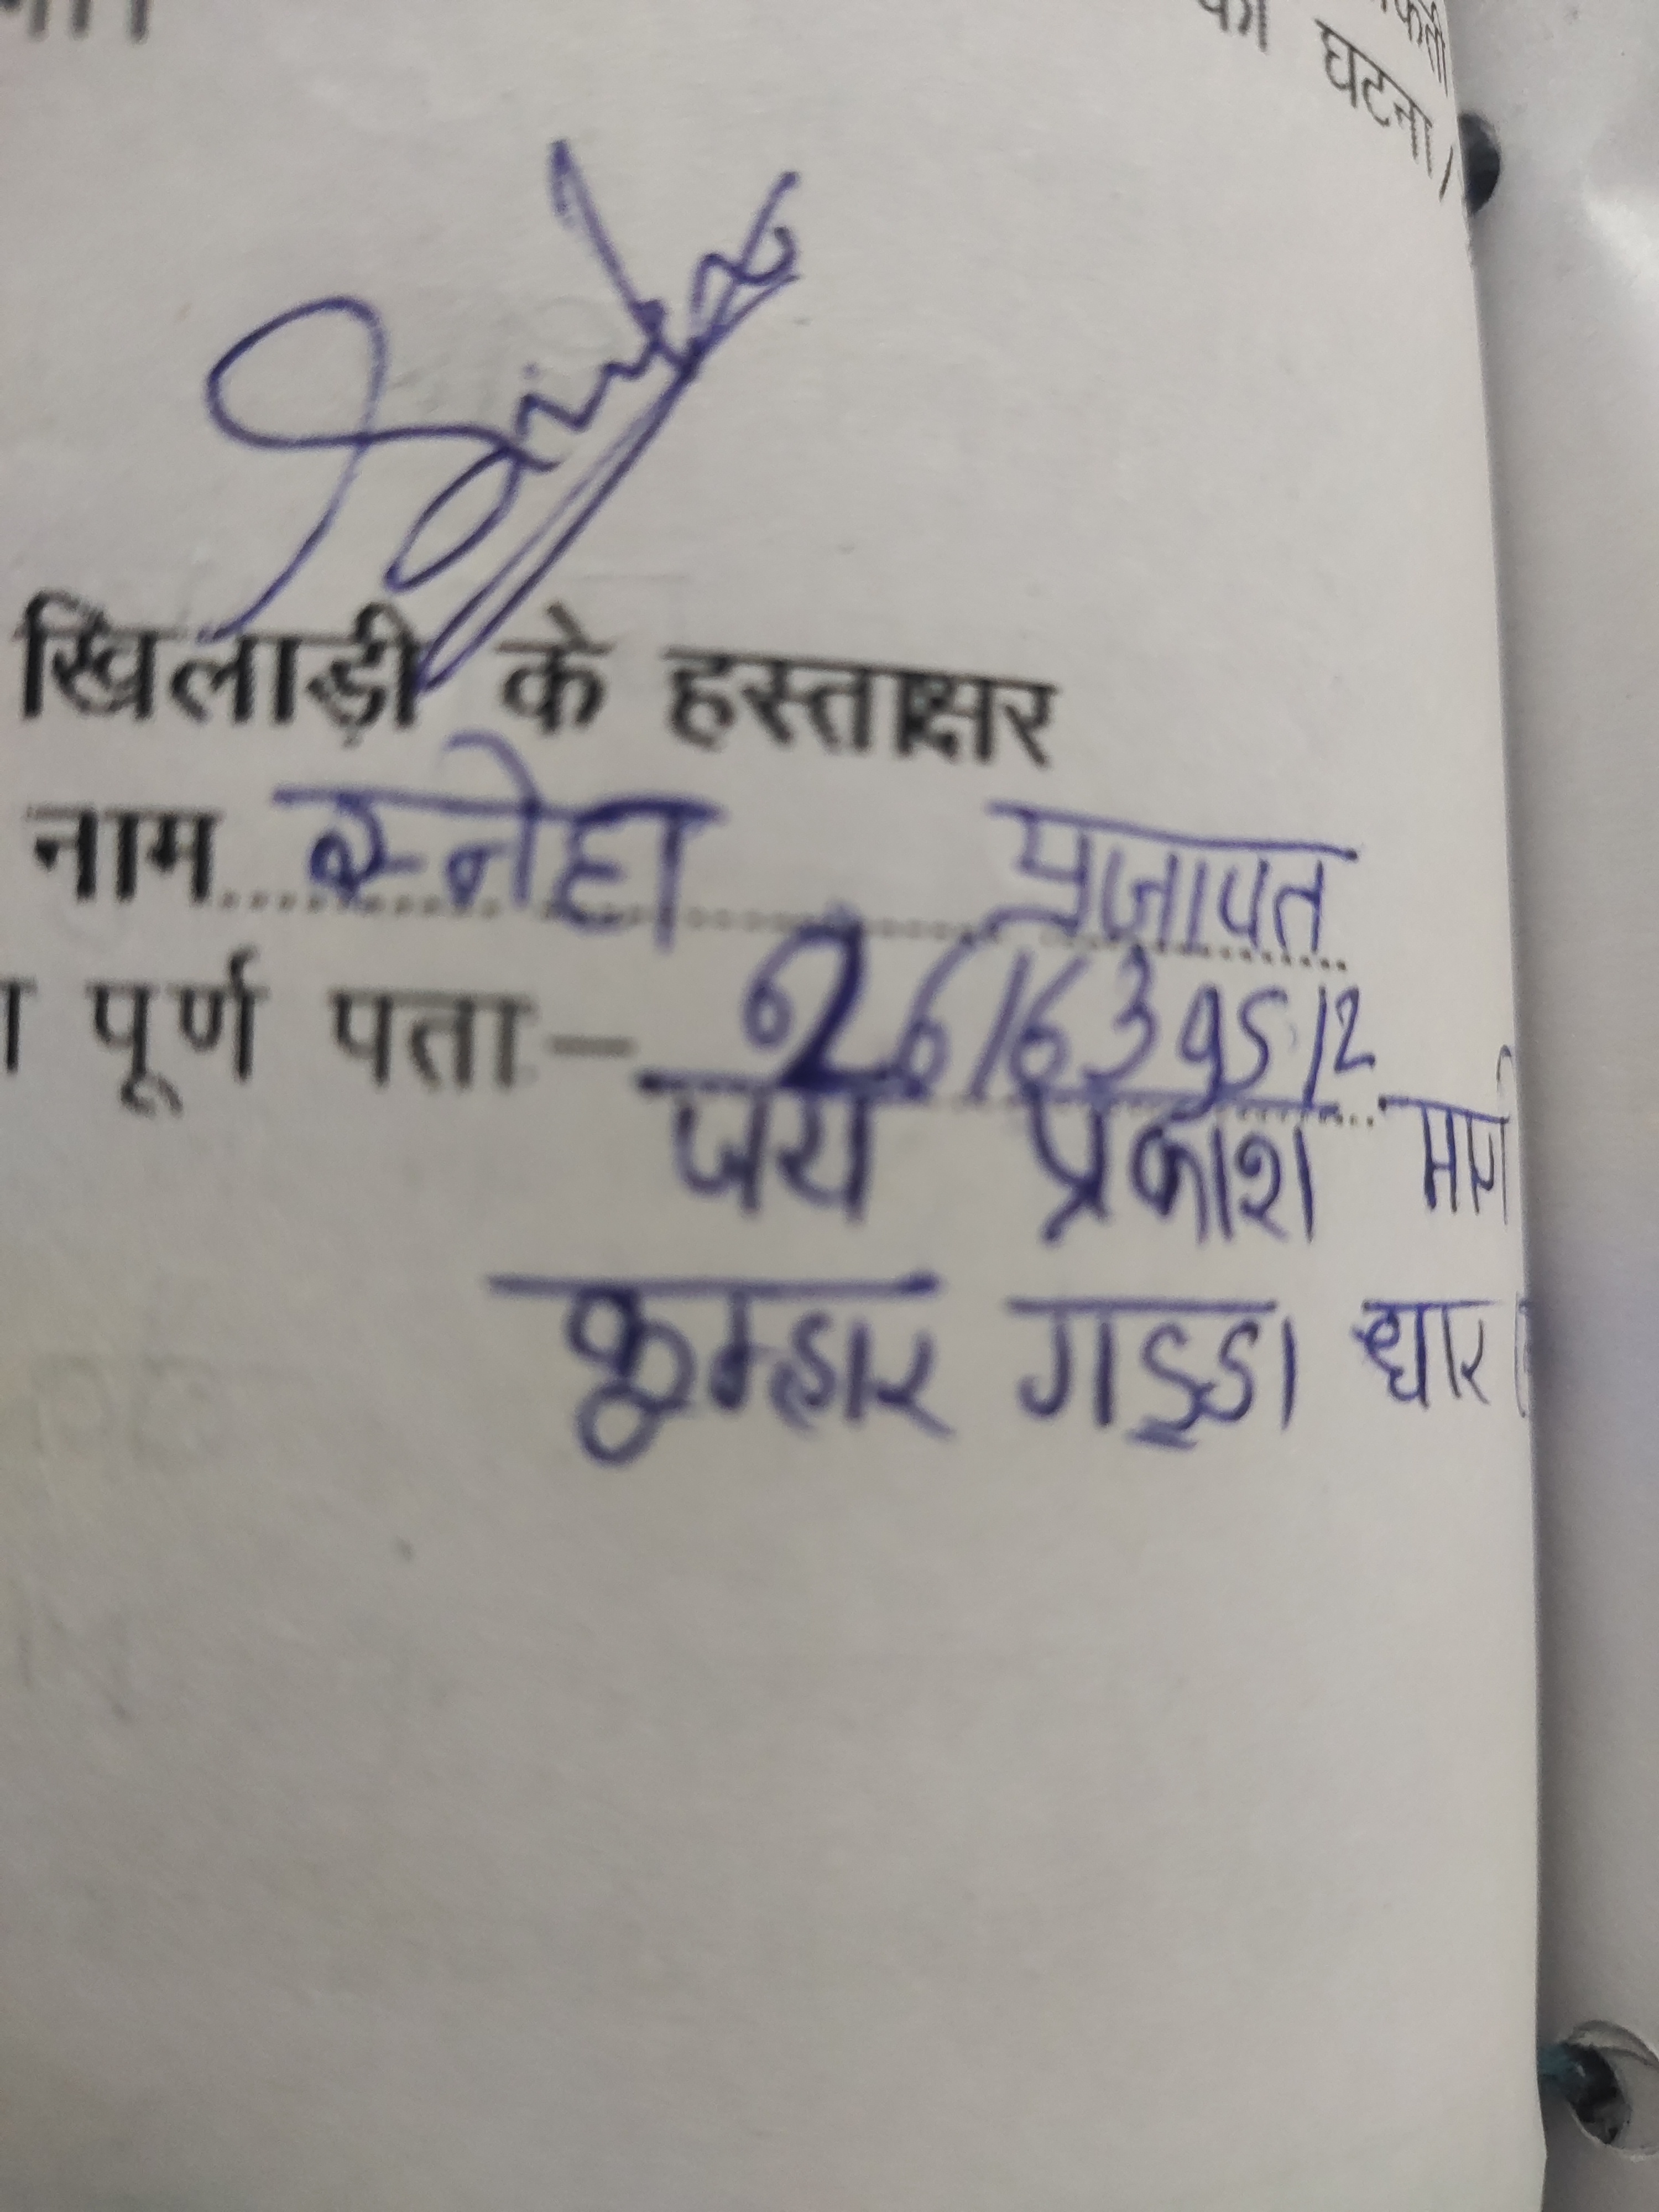 घटना।
खिलाड़ी के हस्ताक्षर
नाम स्नेहा प्रजापत
पूर्ण पता- 26/639512
जय प्रकाश मार्ग
कुम्हार गड्डा धार